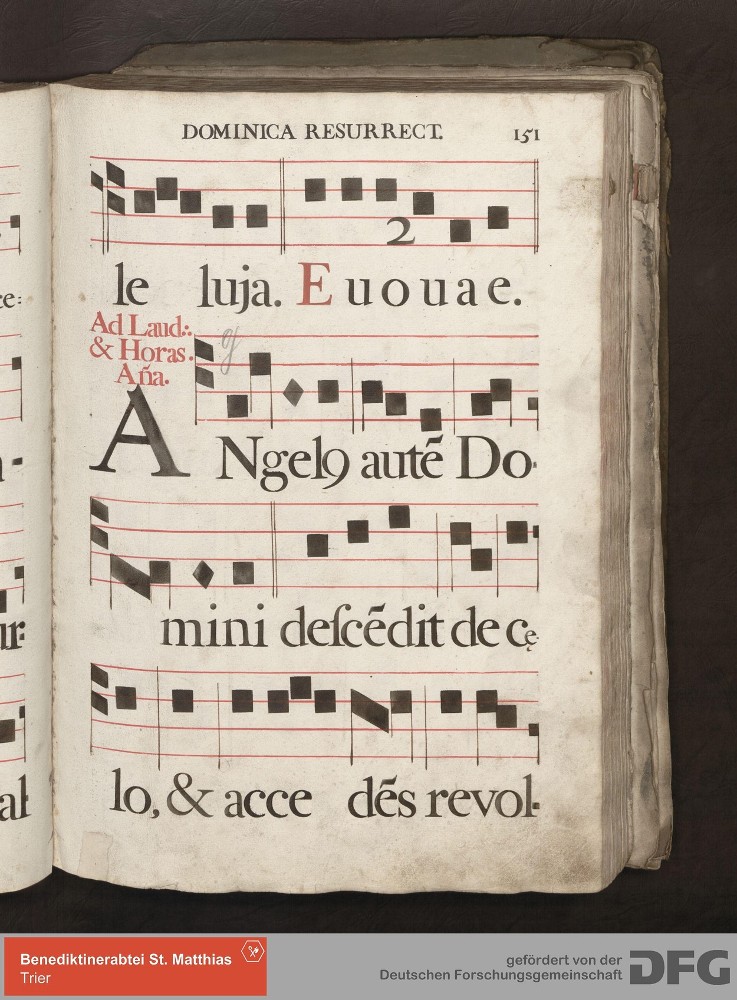 DOMINICA RESURRECT. 151
2
le luja. E u o u a e.
Ad Laud:.
& Horas.
Aña.
g
ANgelꝯ autē Do
mini deſcēdit de cę
lo, & acce dēs revol
Benediktinerabtei St. Matthias
Trier
gefördert von der
Deutschen Forschungsgemeinschaft
DFG